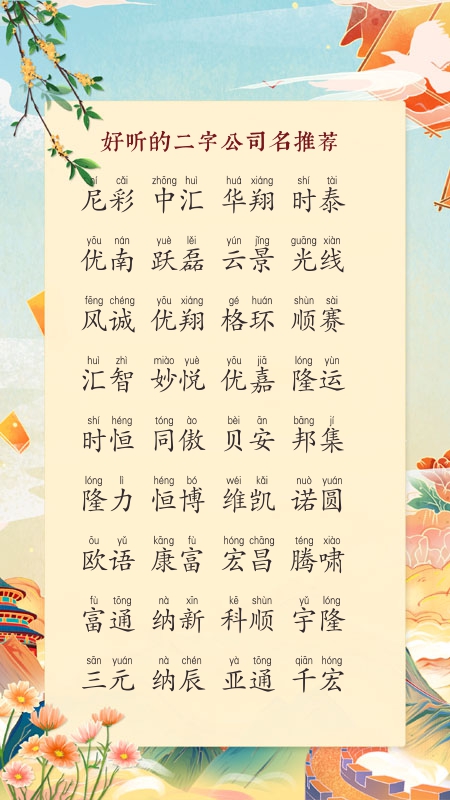 好听的二字公司名推荐
ní cǎi zhōng huì huá xiáng shí tài
尼彩 中汇 华翔 时泰
yōu nán yuè lěi yún jǐng guāng xiàn
优南 跃磊 云景 光线
fēng chéng yōu xiáng gé huán shùn sài
风诚 优翔 格环 顺赛
huì zhì miào yuè yōu jiā lóng yùn
汇智 妙悦 优嘉 隆运
shí héng tóng ào bèi ān bāng jí
时恒 同傲 贝安 邦集
lóng lì héng bó wéi kǎi nuò yuán
隆力 恒博 维凯 诺圆
ōu yǔ kāng fù hóng chāng téng xiào
欧语 康富 宏昌 腾啸
fù tōng nà xīn kē shùn yǔ lóng
富通 纳新 科顺 宇隆
sān yuán nà chén yà tōng qiān hóng
三元 纳辰 亚通 千宏